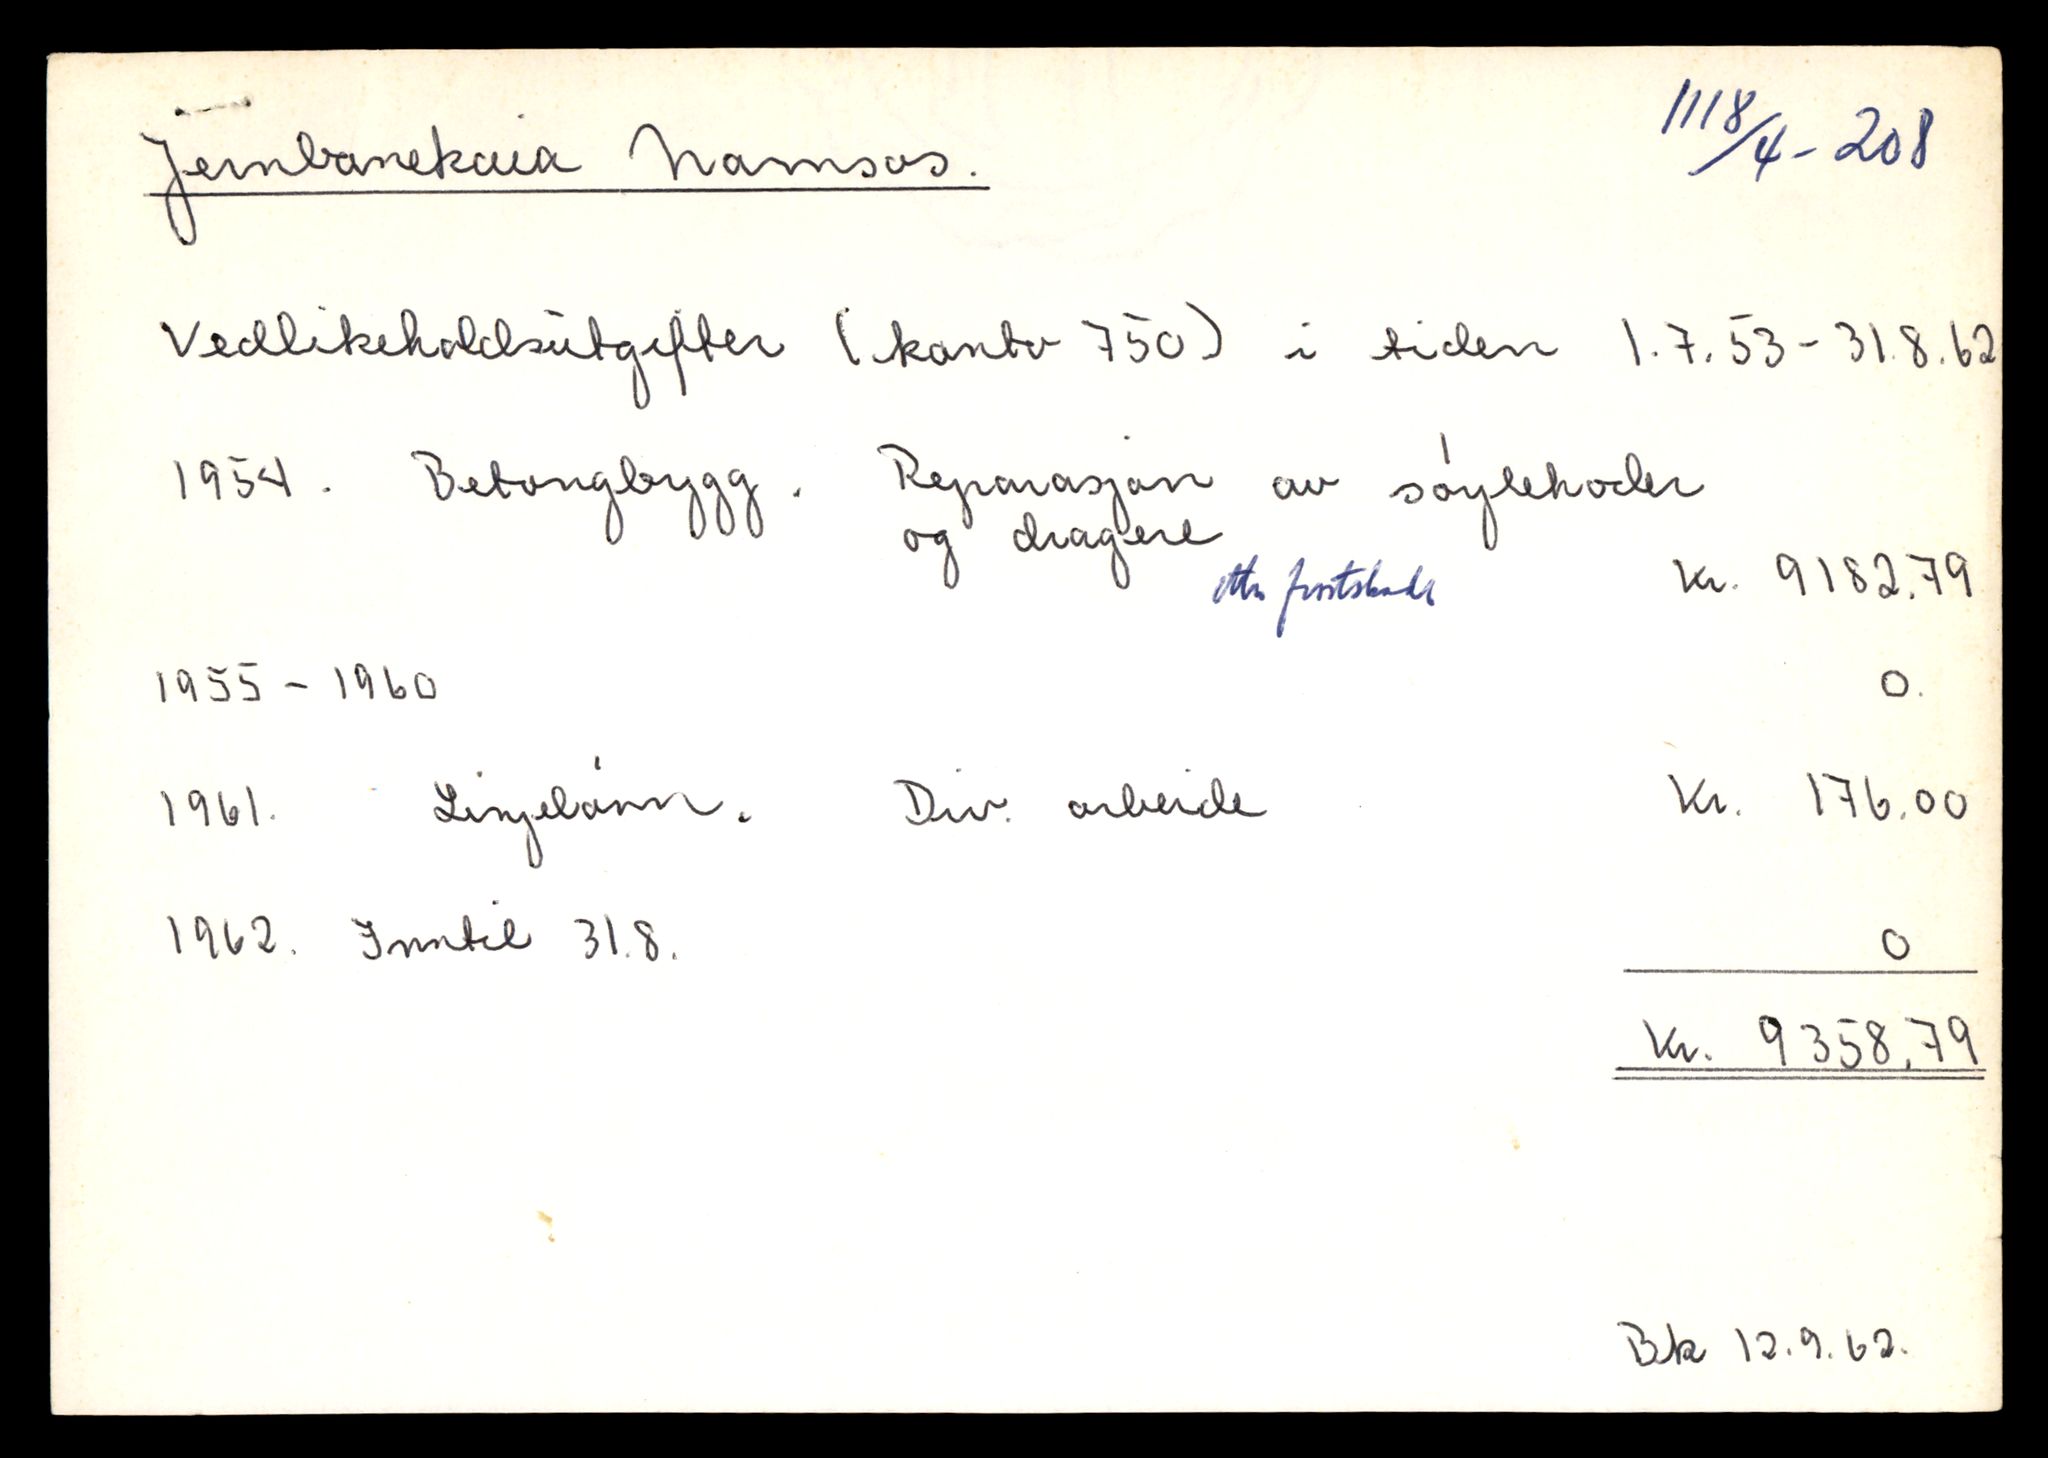 1118/4-208
Jernbanekaia Namsos.
Vedlikeholdsutgifter (konto 750) i tiden 1.7.53-31.8.62
1954. Betongbygg. Reparasjon av søylehoder
og dragere
etter frostskade Kr. 9182.79
1955-1960 0.
1961. Linjelånn. Div. arbeide Kr. 176.00
1962. Inntil 31.8. 0
Kr. 9358.79
Bk 12.9.62.